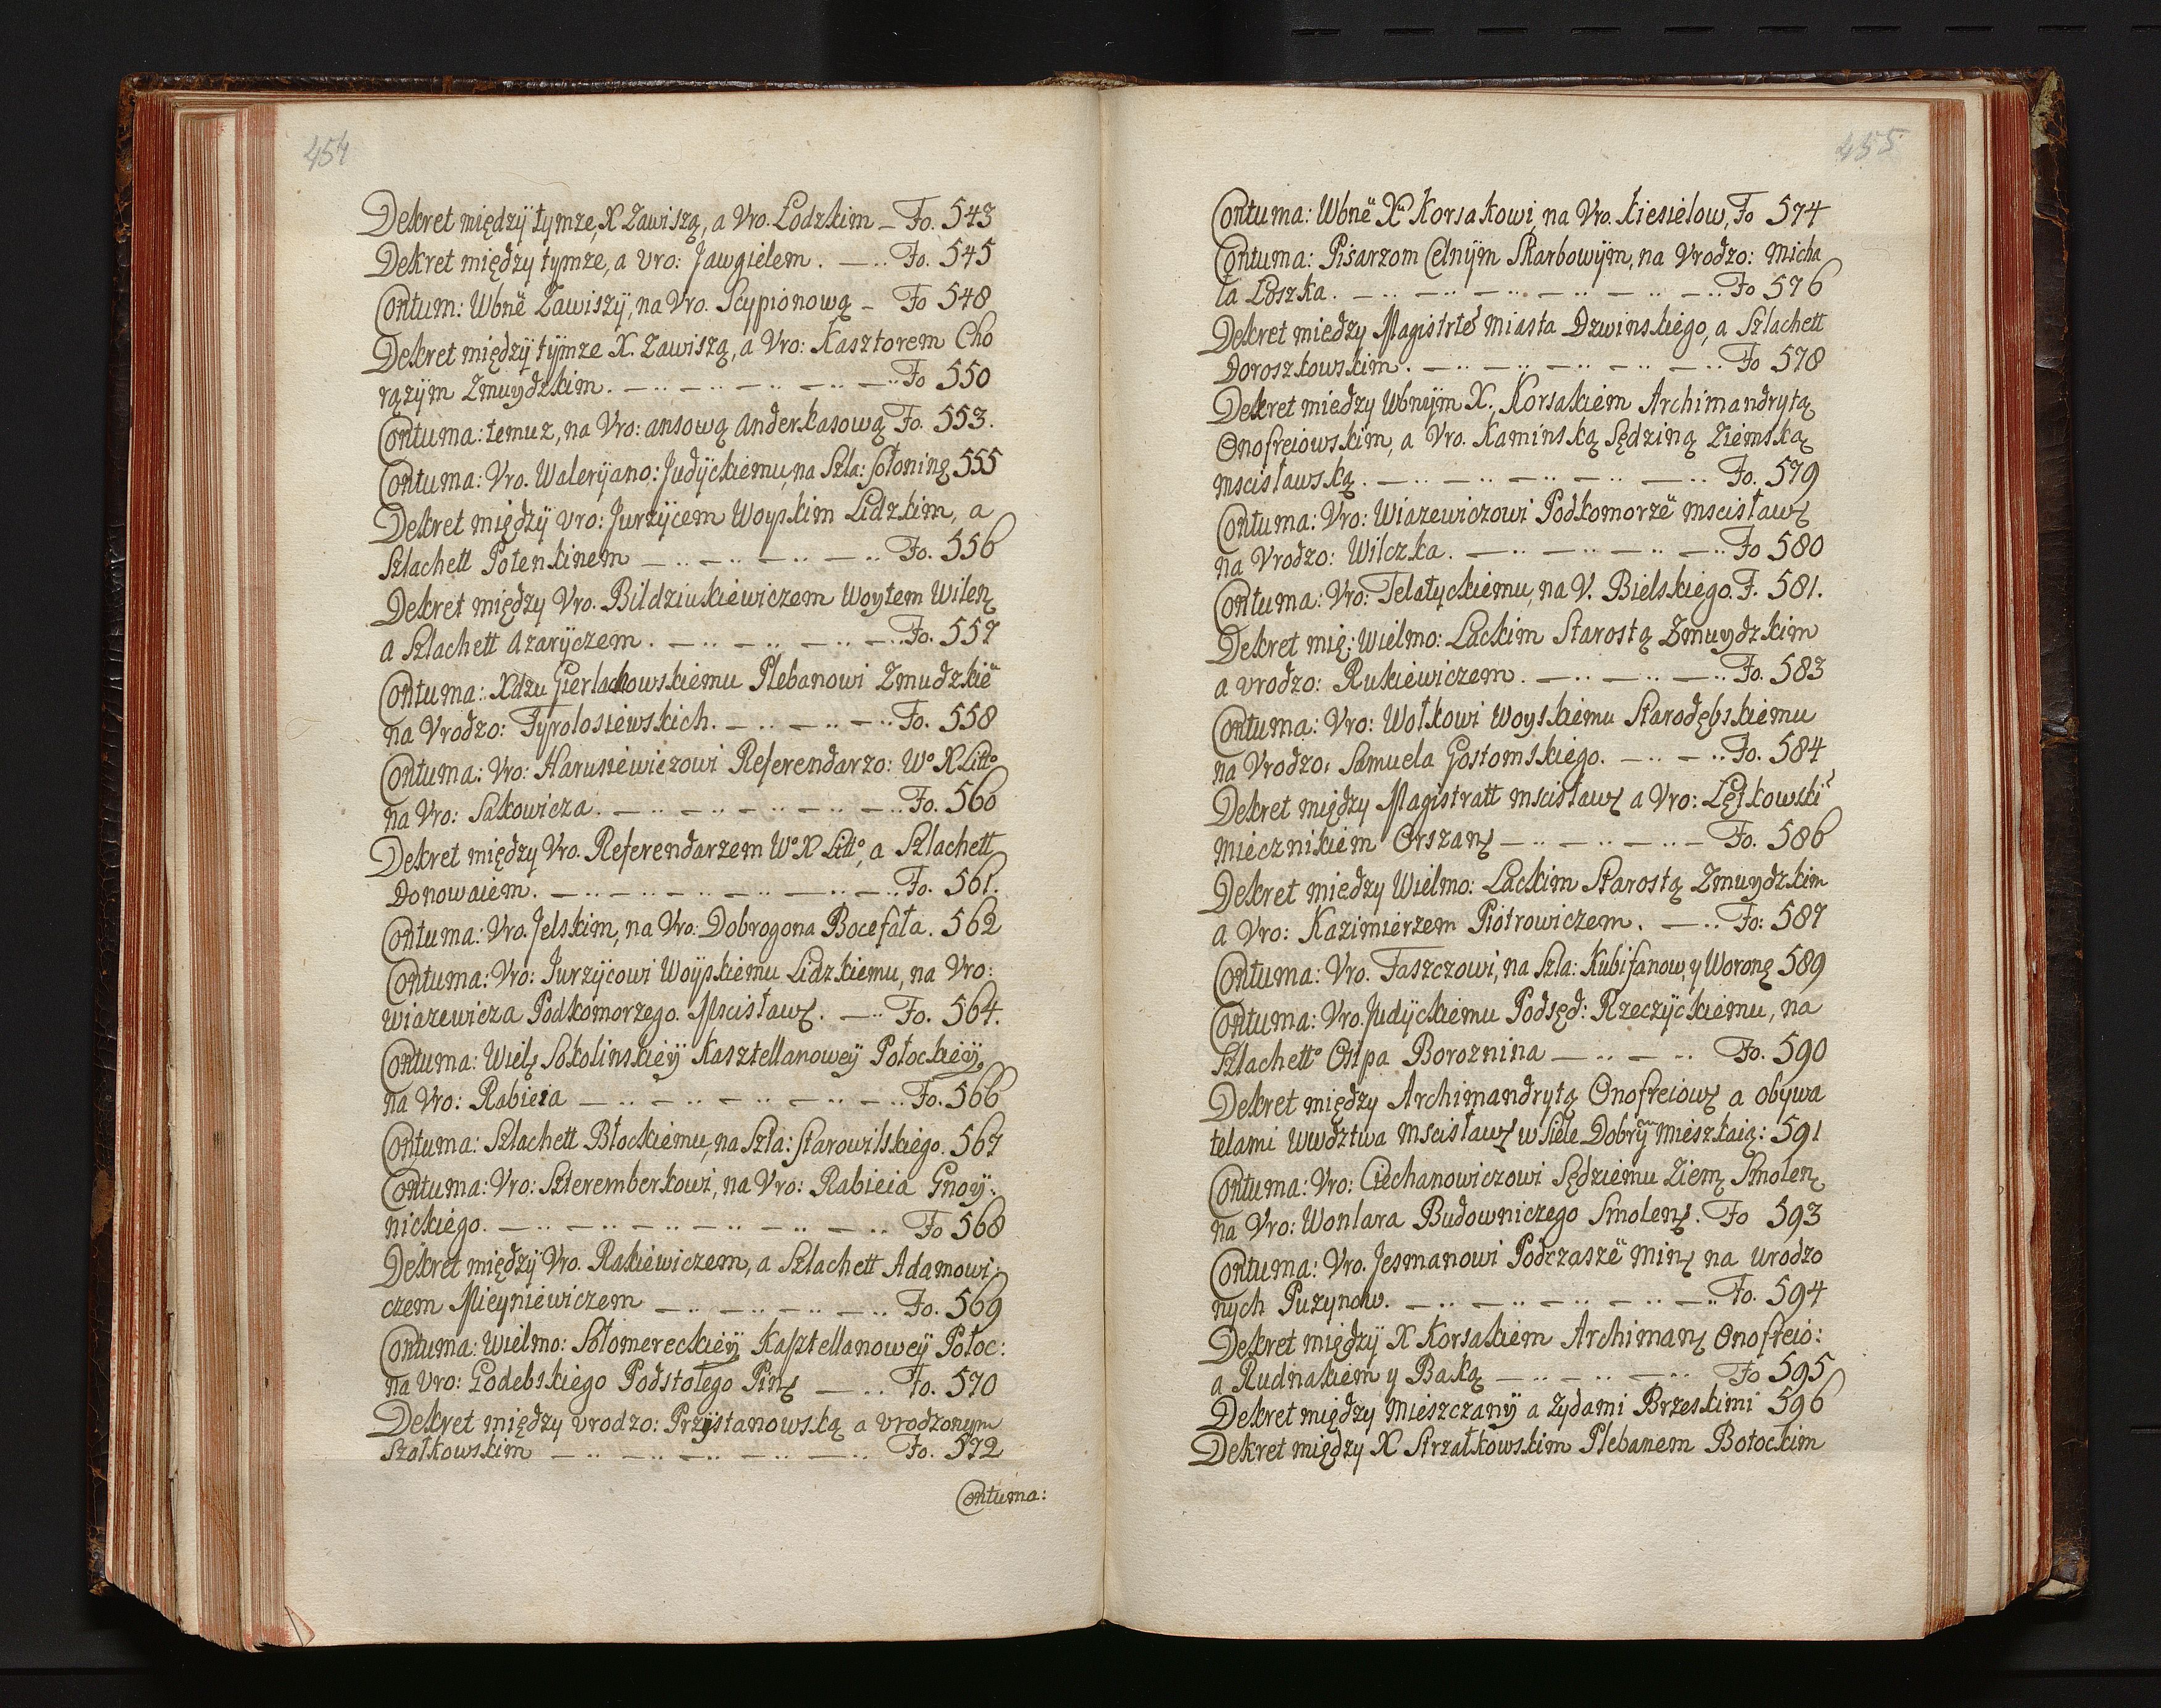 454
Dekret między tymze, X Zawiszą, a Vro. Łodzkim – Fo. 543
Dekret między tymze, a Vro: Jawgielem. — .. Fo. 545
Contum: Wbnë Zawiszÿ, na Vro. Scypionową – Fo 548
Dekret między tÿmze X. Zawiszą, a Vro: Kasztorem Cho
rązÿm Zmuydzkim. — .. — .. — .. — .. — .. Fo 550
Contuma: temuz, na Vro: ansową anderkasową Fo. 553.
Contuma: Vro. Walerÿano: Judÿckiemu, na Szla: Sołoninę 555
Dekret międzÿ Vro: Jurzÿcem Woyskim Lidzkim, a
Szlachett Potenkinem — .. — .. — .. — .. Fo. 556
Dekret między Vro. Bildziukiewiczem Woytem Wilen
a Szlachett Azarÿczem. — .. — .. — .. — .. Fo. 557
Contuma: Xdzu Gierlachowskiemu Plebanowi Zmudzkië
na Vrodzo: Tyrolosiewskich. — .. — .. — .. Fo. 558
Contuma: Vro: Harusiewiczowi Referendarzo: Wº X Littº
na Vro: Sakowicza. — .. — .. — .. — .. — .. Fo. 560
Dekret między Vro. Referendarzem Wº X Littº, a Szlachett
Donowaiem. — .. — .. — .. — .. — .. — .. Fo. 561.
Contuma: Vro. Jelskim, na Vro: Dobrogona Bocefała. 562
Contuma: Vro: Jurzÿcowi Woÿskiemu Lidzkiemu, na Vro:
Wiazewicza Podkomorzego. Mscisław. — .. Fo. 564.
Contuma: Wiel Sokolinskieÿ Kasztellanoweÿ Połockieÿ,
na Vro: Rabieia — .. — .. — .. — .. — .. Fo. 566
Contuma: Szlachett Błockiemu, na Szla: Starowilskiego. 567
Contuma: Vro: Szteremberkowi, na Vro: Rabieia Gnoÿ:
nickiego. — .. — .. — .. — .. — .. — .. Fo 568
Dekret międzÿ Vro. Rakiewiczem, a Szlachett Adamowi:
czem Mieyniewiczem — .. — .. — .. — .. Fo. 569
Contuma: Wielmo: Sołomereckieÿ Kasztellanoweÿ Połoc:
na Vro: Godebskiego Podstolego Pin — .. Fo. 570
Dekret między Vrodzo: Przystanowską a Vrodzonym
Szałkowskim — .. — .. — .. — .. — .. Fo. 572
Contuma:
455
Contuma: Wbnë Xu Korsakowi, na Vro. Kiesielow, Fo 574
Contuma: Pisarzom Celnÿm Skarbowÿm, na Vrodzo: Micha
ła Łoszka. — .. — .. — .. — .. — .. — .. Fo 576
Dekret miedzy Magistrtë miasta Dzwinskiego, a Szlachett
Doroszkowskim. — .. — .. — .. — .. — .. Fo 578
Dekret miedzy Wbneÿm X. Korsakiem Archimandrytą
Onofreiowskim, a Vro. Kaminską Sędziną Ziemską
mscisławską. — .. — .. — .. — .. — .. Fo. 579
Contuma: Vro: Wiazewiczowi Podkomorzë mscisław
na Vrodzo: Wilczka. — .. — .. — .. — .. Fo 580
Contuma: Vro: Telatyckiemu, na V. Bielskiego. F. 581.
Dekret mię: Wielmo: Lackim Starostą Zmuydzkim
a vrodzo: Rukiewiczem. — .. — .. — .. Fo. 583
Contuma: Vro: Wołkowi Woyskiemu Starodębskiemu
na Vrodzo: Samuela Gostomskiego. — .. — .. Fo. 584
Dekret między Magistratt mscisław a Vro: Lętkowski
miecznikiem Orszan — .. — .. — .. – Fo. 586
Dekret miedzy Wielmo: Lackim Starostą Zmuydzkim
a Vro: Kazimierzem Piotrowiczem. — .. Fo: 587
Contuma: Vro. Faszczowi, na Szla: Kubifanow, y Woronę 589
Contuma: Vro. Judÿckiemu Podsęd: Rzeczÿckiemu, na
Szlachettº Osipa Boroznina — .. — .. Fo. 590
Dekret między Archimandrytą Onofreiow a obywa
telami Wwdztwa Mscisław w siele Dobrÿm mieszkaią: 591
Contuma: Vro: Ciechanowiczowi Sędziemu Ziem Smolen
na Vro: Wonlara Budowniczego Smolen. Fo 593
Contuma: Vro. Jesmanowi Podczaszë Min na Urodzo
nych Puzynow. — .. — .. — .. — .. — .. Fo. 594
Dekret międzÿ X Korsakiem Archiman Onofreio:
a Rudnakiem y Baką — .. — .. — .. Fo 595
Dekret między Mieszczanÿ a Zydami Brzeskimi 596
Dekret między X Strzałkowskim Plebanem Botockim